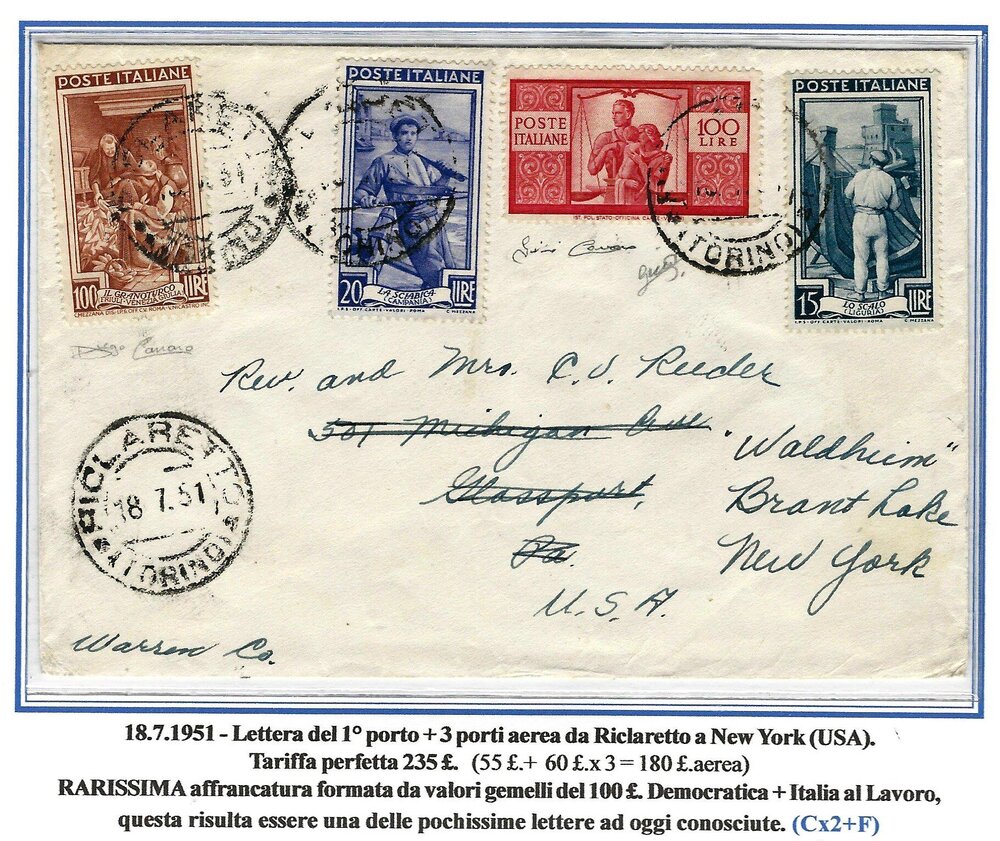 POSTE ITALIANE
100 LIRE
IL GRANOTURCO
(FRIULI-VENEZIA GIULIA)
C.MEZZANA DIS. I.P.S. OFF. CV. ROMA
POSTE ITALIANE
20 LIRE
LA SCIABICA
(CAMPANIA)
I.P.S.-OFF. CARTE-VALORI-ROMA C. MEZZANA
POSTE
ITALIANE
100
LIRE
IST. POL. STATO-OFFICINA
(TORINO)
POSTE ITALIANE
15 LIRE
LO SCALO
(LIGURIA)
I.P.S.-OFF. CARTE-VALORI-ROMA C. MEZZANA
Diego Carraro
Rev. and Mrs. C. J. Reeder
501 Michigan Ave.
Glassport,
Pa.
"Waldheim"
Brant Lake
New York
U.S.A.
RICLARETTO
18.7.51
(TORINO)
Warren Co.
18.7.1951 - Lettera del 1° porto + 3 porti aerea da Riclaretto a New York (USA).
Tariffa perfetta 235 £. (55 £.+ 60 £.x 3 = 180 £.aerea)
RARISSIMA affrancatura formata da valori gemelli del 100 £. Democratica + Italia al Lavoro,
questa risulta essere una delle pochissime lettere ad oggi conosciute. (Cx2+F)